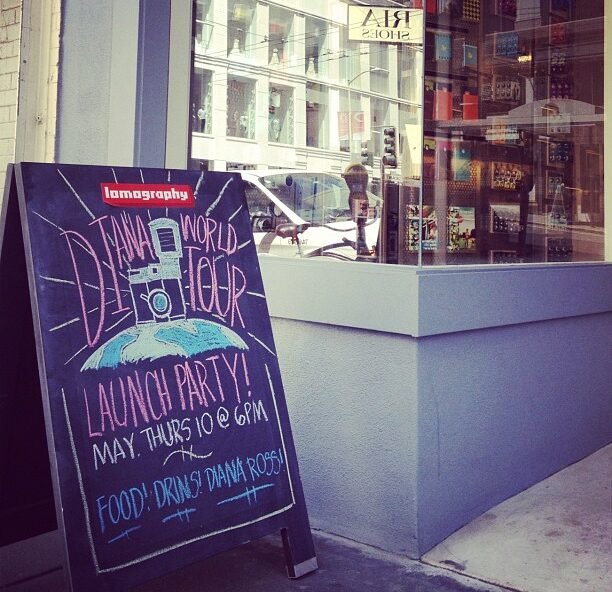 RIA
SHOES
lomography
DIANA WORLD
TOUR
LAUNCH PARTY!
MAY. THURS 10 @ 6PM
FOOD! DRINS! DIANA ROSS!